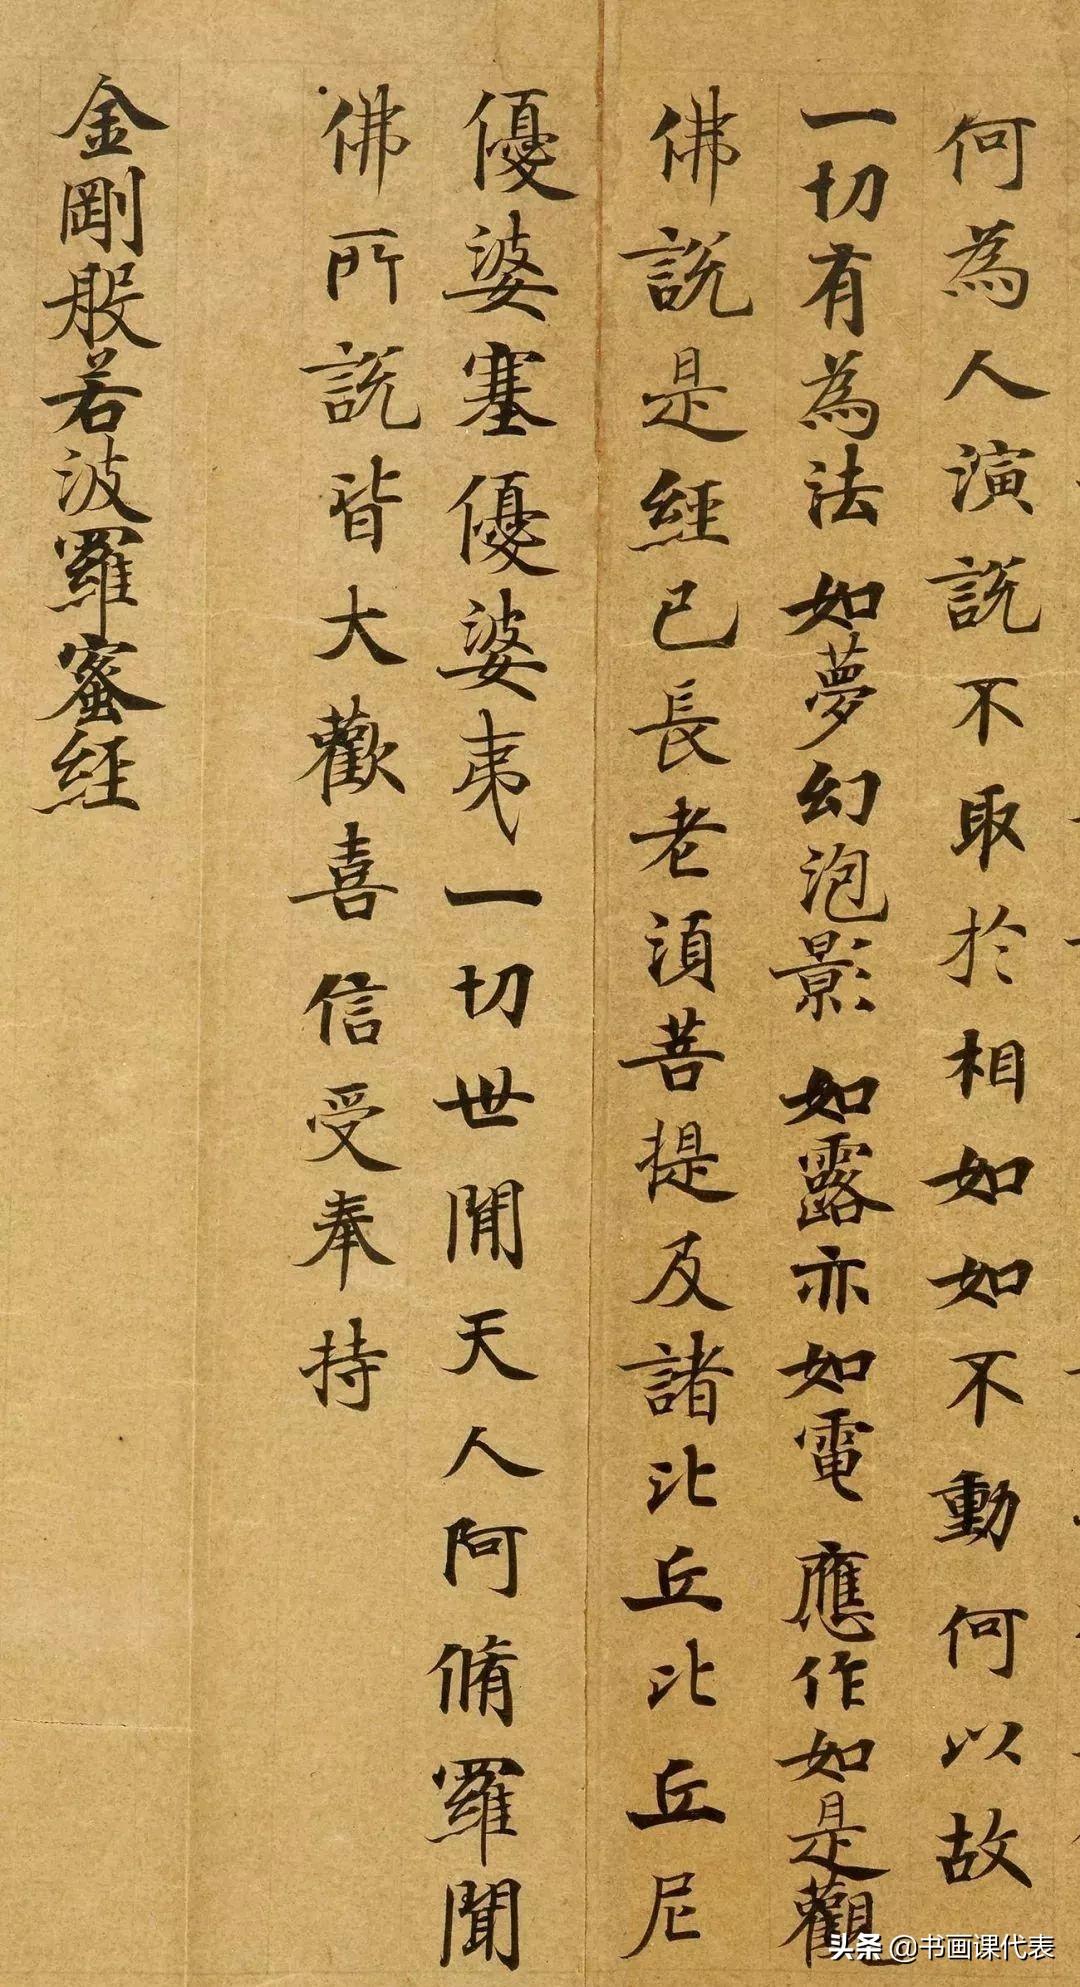 何為人演說不取於相如如不動何以故
一切有為法如夢幻泡影如露亦如電應作如是觀
佛說是經已長老須菩提及諸比丘比丘尼
優婆塞優婆夷一切世間天人阿脩羅聞
佛所說皆大歡喜信受奉持
金剛般若波羅蜜經
头条 @书画课代表